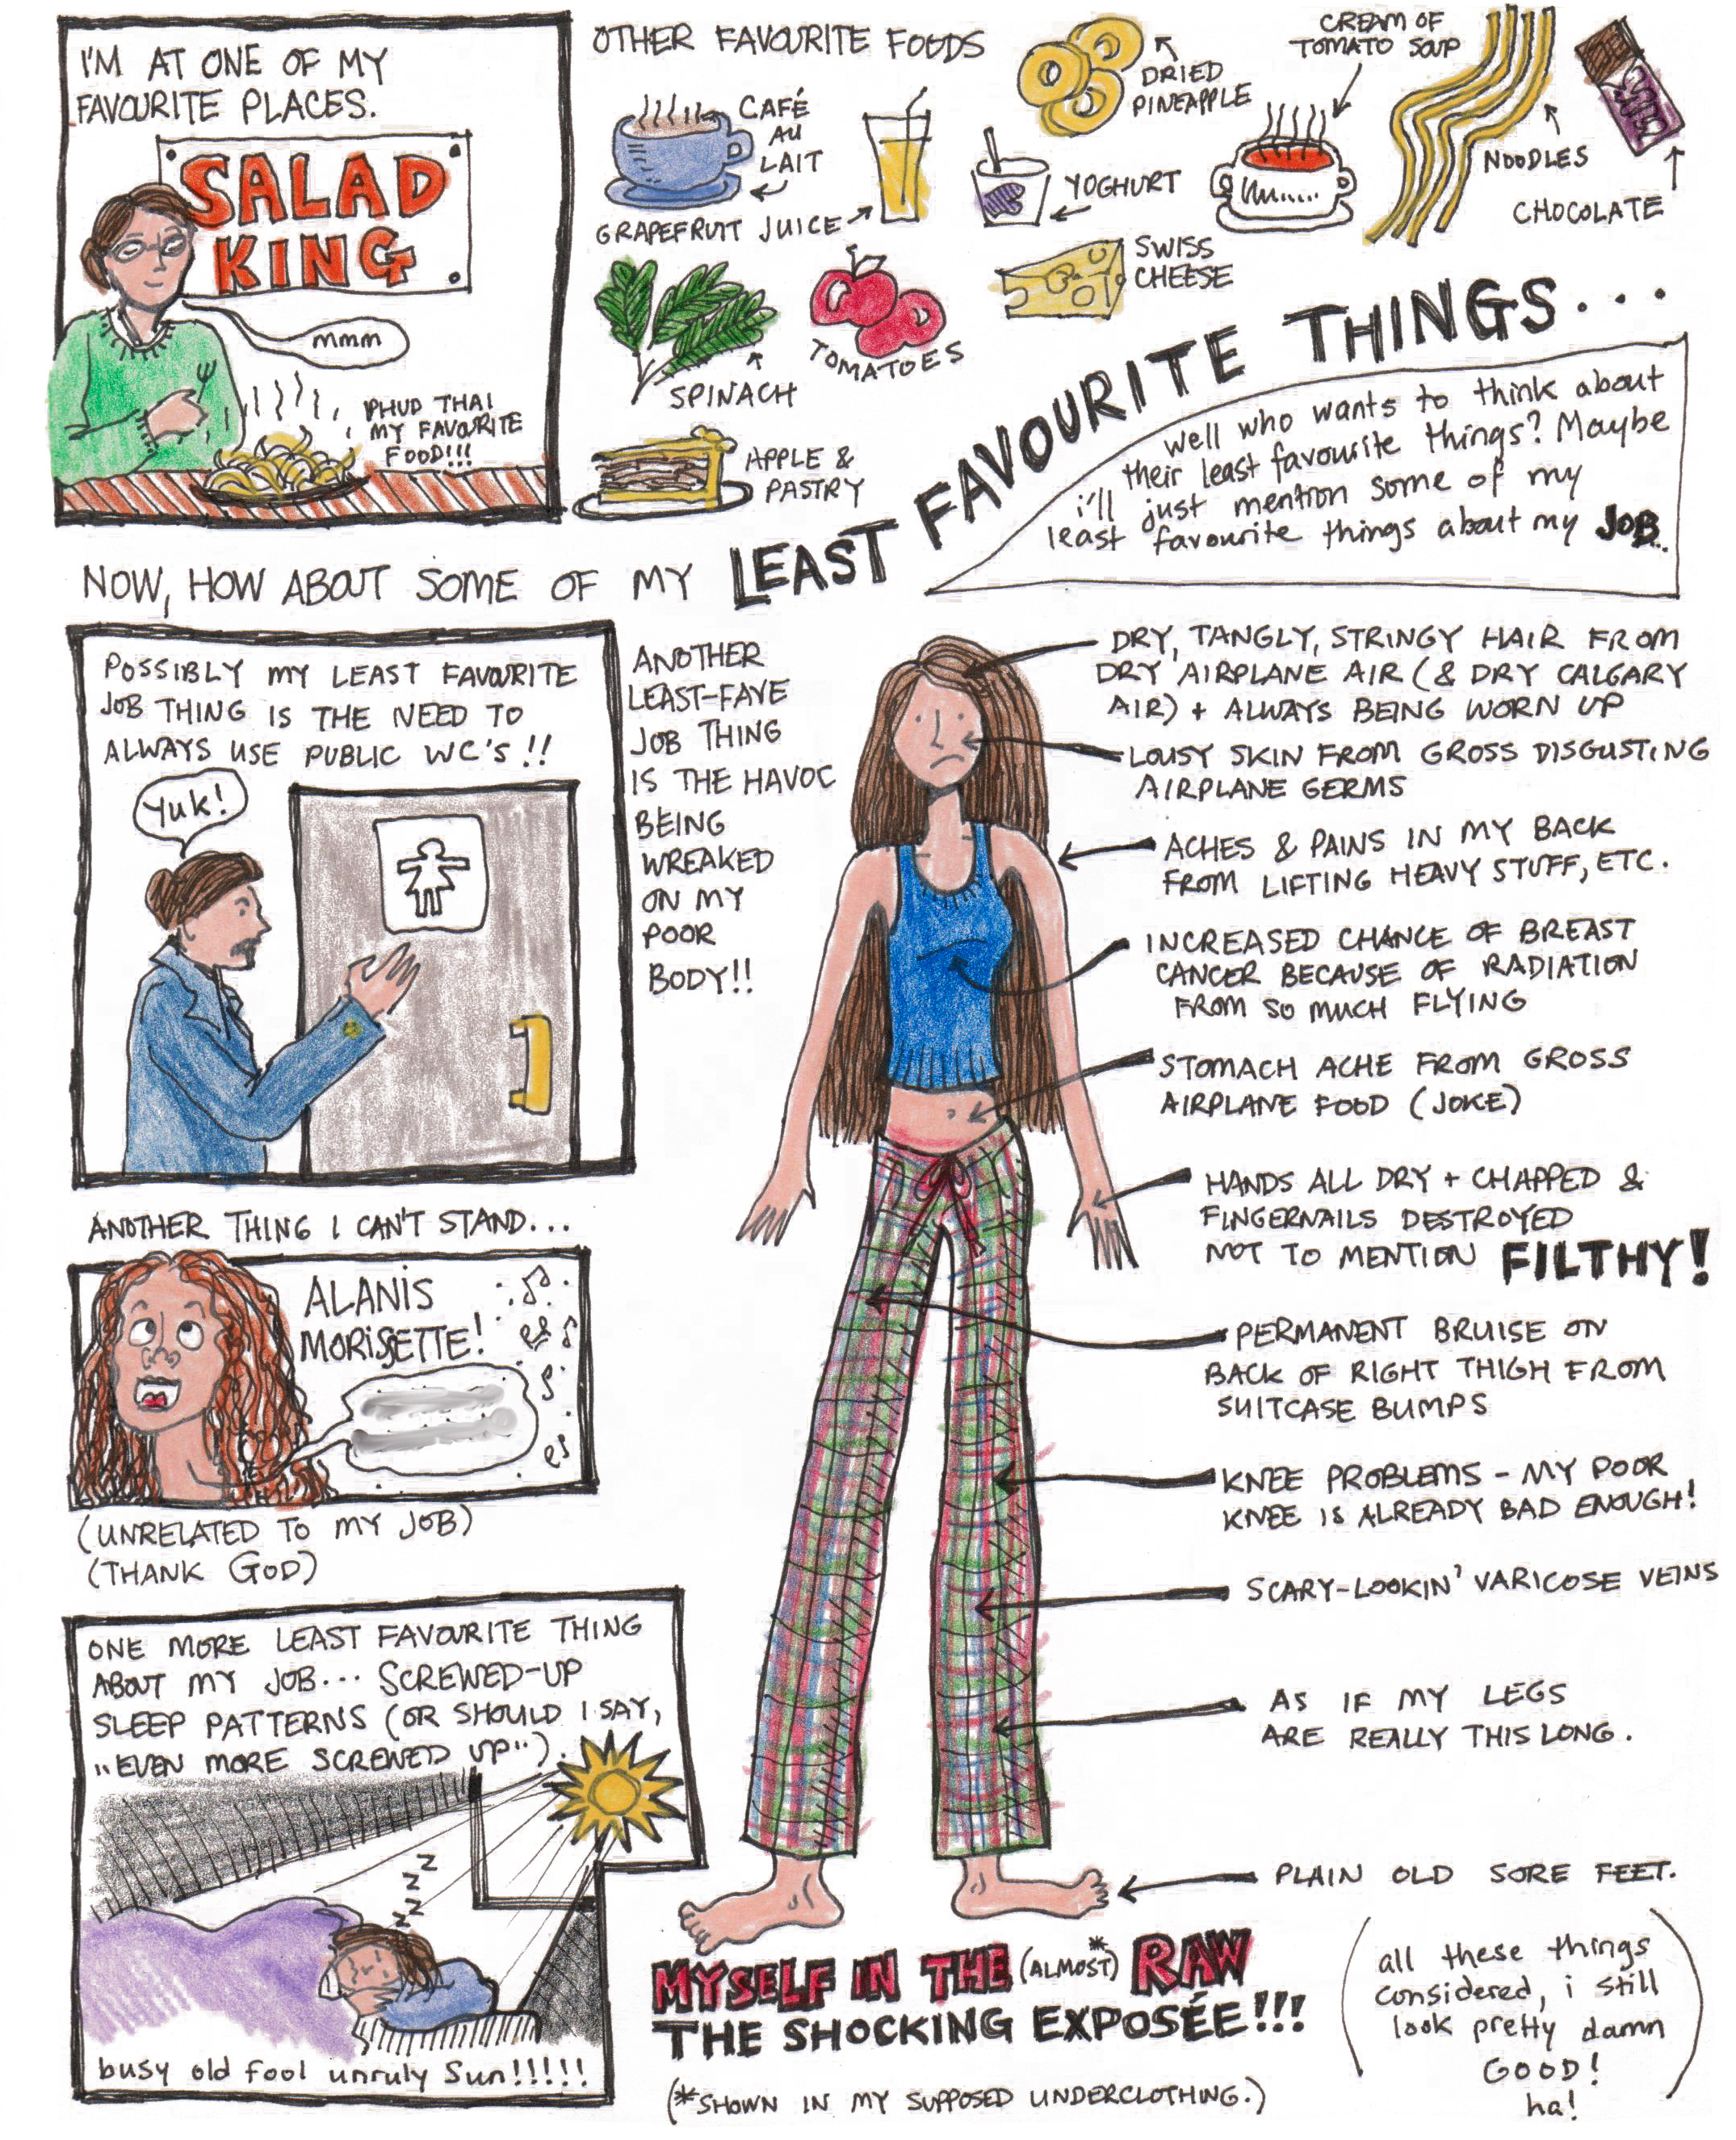 I'M AT ONE OF MY
FAVOURITE PLACES.
SALAD
KING
mmm
PHUD THAI
MY FAVOURITE
FOOD!!!
OTHER FAVOURITE FOODS
CAFÉ
AU
LAIT
GRAPEFRUIT JUICE
DRIED
PINEAPPLE
YOGHURT
CREAM OF
TOMATO SOUP
NOODLES
CHOCOLATE
SPINACH
TOMATOES
SWISS
CHEESE
APPLE &
PASTRY
NOW, HOW ABOUT SOME OF MY LEAST FAVOURITE THINGS...
well who wants to think about
their least favourite things? Maybe
i'll just mention some of my
least favourite things about my JOB..
POSSIBLY MY LEAST FAVOURITE
JOB THING IS THE NEED TO
ALWAYS USE PUBLIC WC'S!!
Yuk!
ANOTHER
LEAST-FAVE
JOB THING
IS THE HAVOC
BEING
WREAKED
ON MY
POOR
BODY!!
DRY, TANGLY, STRINGY HAIR FROM
DRY AIRPLANE AIR (& DRY CALGARY
AIR) + ALWAYS BEING WORN UP
LOUSY SKIN FROM GROSS DISGUSTING
AIRPLANE GERMS
ACHES & PAINS IN MY BACK
FROM LIFTING HEAVY STUFF, ETC.
INCREASED CHANCE OF BREAST
CANCER BECAUSE OF RADIATION
FROM SO MUCH FLYING
STOMACH ACHE FROM GROSS
AIRPLANE FOOD (JOKE)
HANDS ALL DRY + CHAPPED &
FINGERNAILS DESTROYED
NOT TO MENTION FILTHY!
PERMANENT BRUISE ON
BACK OF RIGHT THIGH FROM
SUITCASE BUMPS
KNEE PROBLEMS - MY POOR
KNEE IS ALREADY BAD ENOUGH!
SCARY-LOOKIN' VARICOSE VEINS
AS IF MY LEGS
ARE REALLY THIS LONG.
PLAIN OLD SORE FEET.
ANOTHER THING I CAN'T STAND...
ALANIS
MORISSETTE!
(UNRELATED TO MY JOB)
(THANK GOD)
ONE MORE LEAST FAVOURITE THING
ABOUT MY JOB... SCREWED-UP
SLEEP PATTERNS (OR SHOULD I SAY,
"EVEN MORE SCREWED UP").
Z
Z
Z
Z
Z
busy old fool unruly Sun!!!!!
MYSELF IN THE (ALMOST*) RAW
THE SHOCKING EXPOSÉE!!!
(*SHOWN IN MY SUPPOSED UNDERCLOTHING.)
(all these things
considered, i still
look pretty damn
GOOD!
ha!)